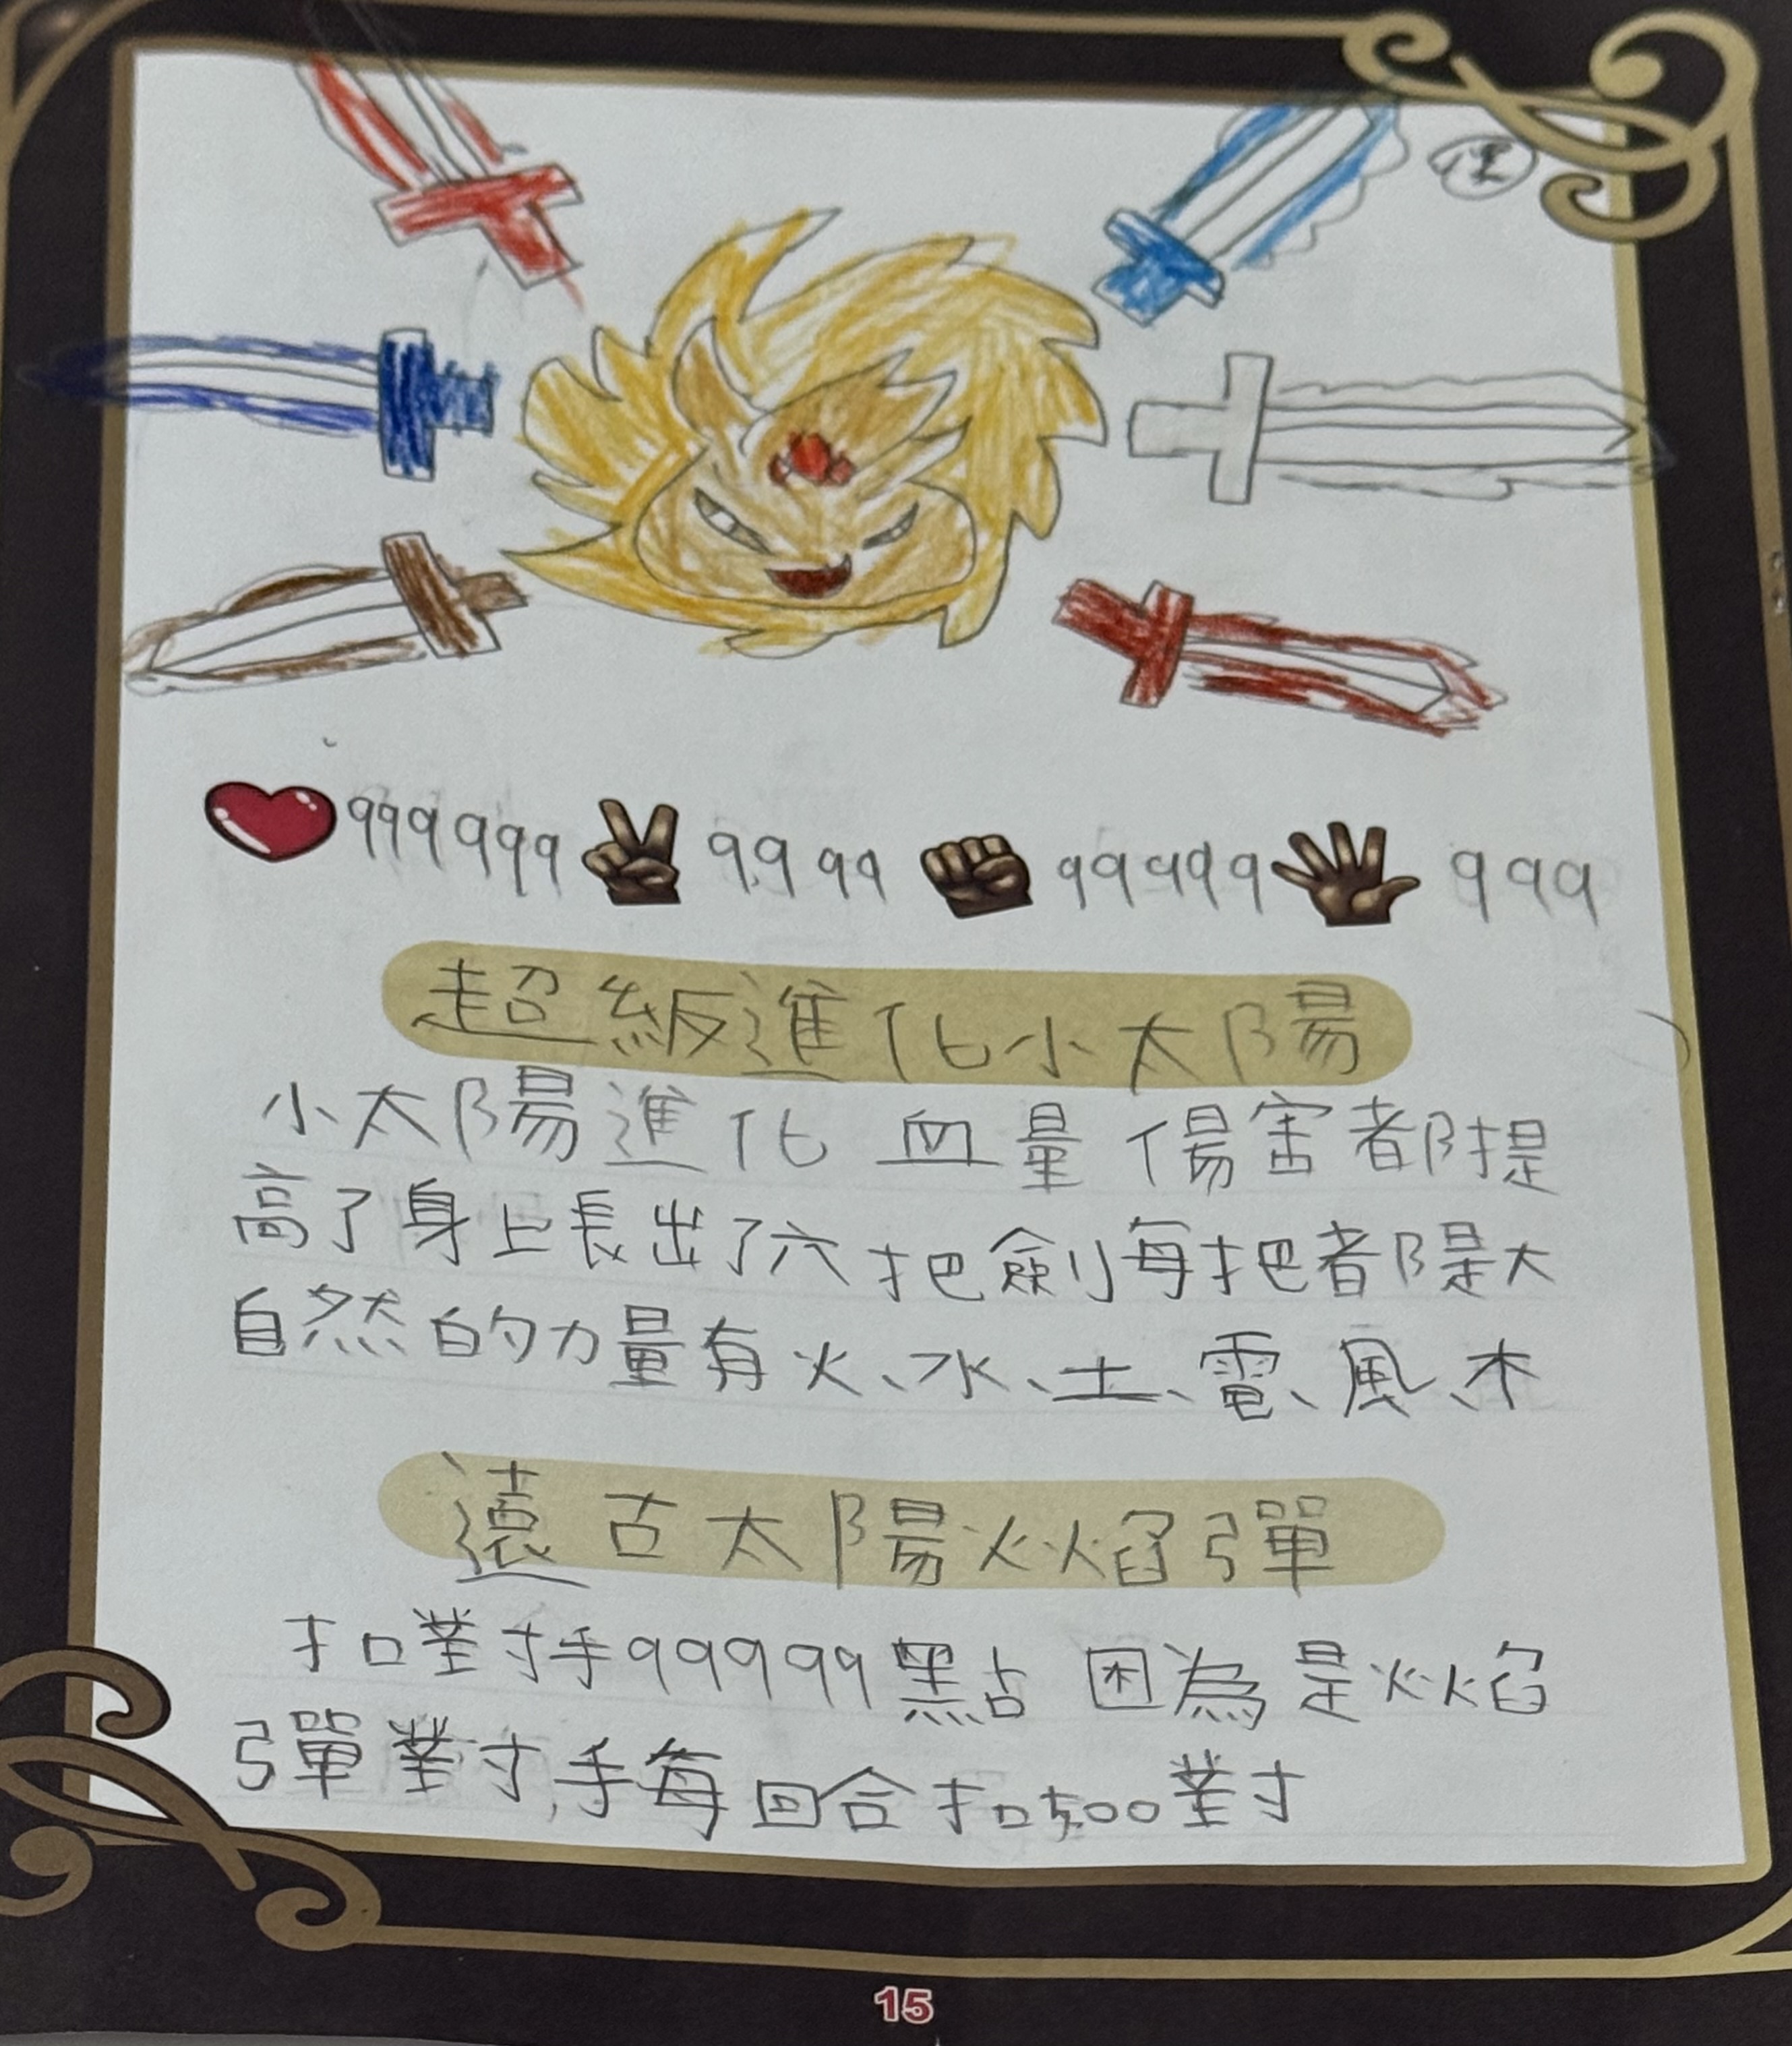 999999 9999 99999 999
超級進化小太陽
小太陽進化 血量傷害都提
高了身上長出了六把劍每把都是大
自然的力量有火、水、土、電、風、木
遠古太陽火焰彈
扣對手99999點 因為是火焰
彈對手每回合扣500對
15